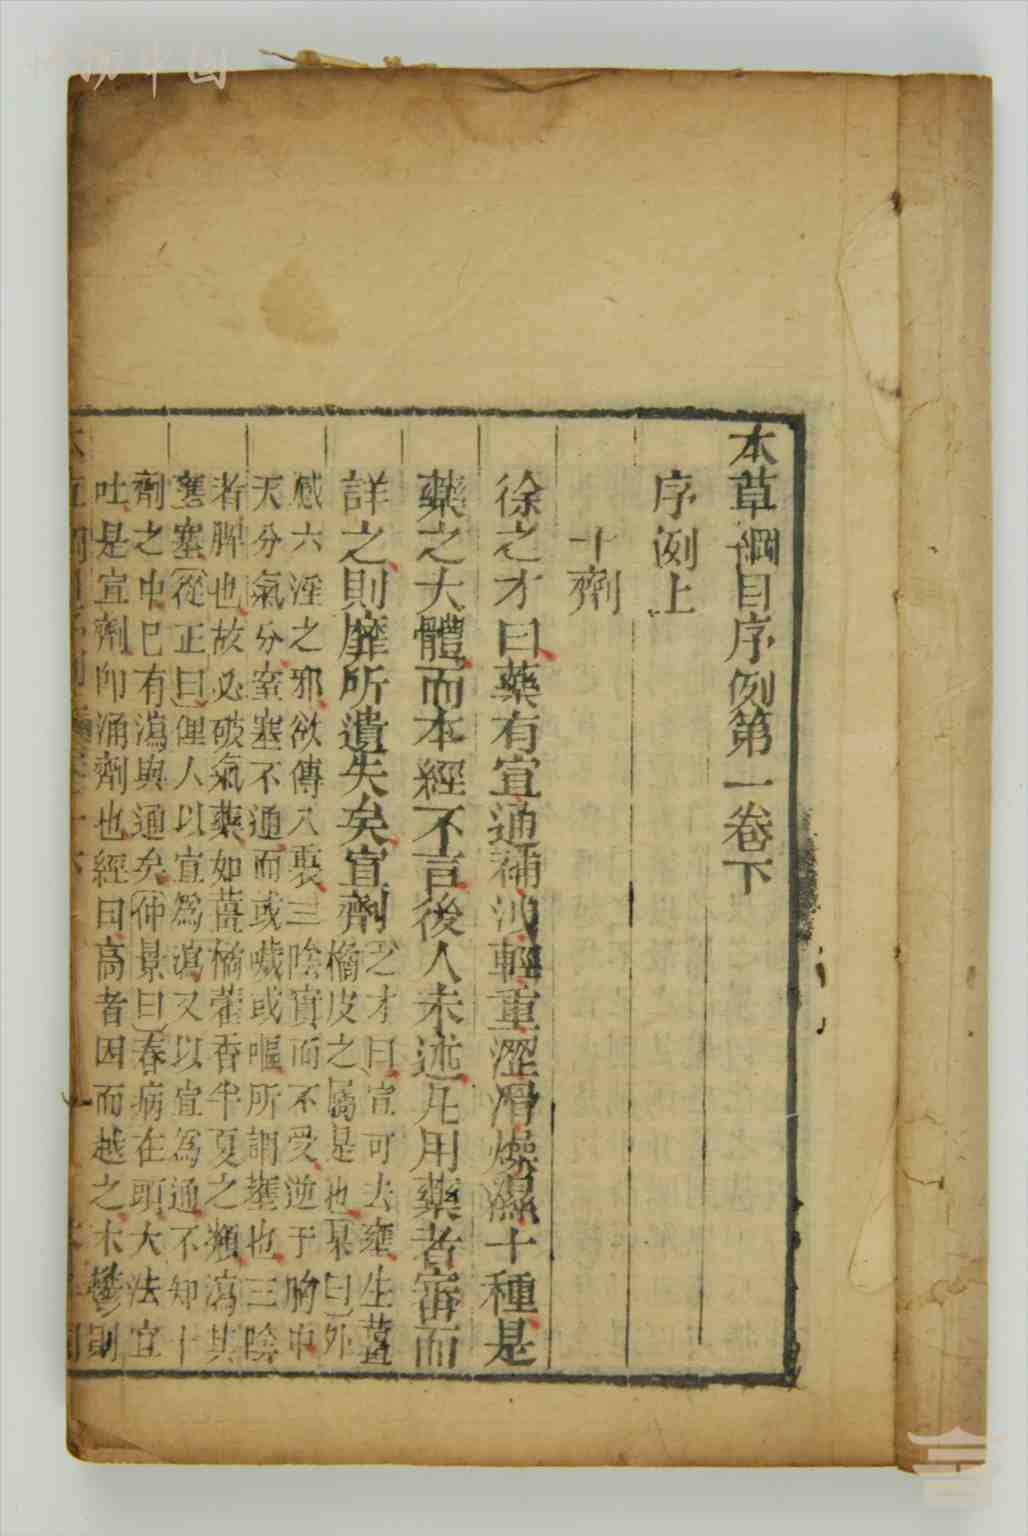 本草綱目序例第一卷下
序例上
十劑
徐之才曰藥有宣通補洩輕重澀滑燥濕十種是
藥之大體而本經不言後人未述凡用藥者審而
詳之則靡所遺失矣宣劑
之才曰宣可去壅生薑
橘皮之屬是也杲曰外
感六淫之邪欲傳入裏三陰實而不受逆于胸中
天分氣分窒塞不通而或噦或嘔所謂壅也三陰
者脾也故必破氣藥如薑橘藿香半夏之類瀉其
壅塞從正曰俚人以宣爲瀉又以宣爲通不知十
劑之中已有瀉與通矣仲景曰春病在頭大法宜
吐是宣劑卽涌劑也經曰高者因而越之木鬱則